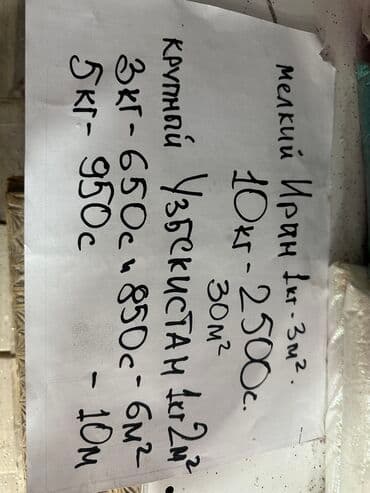 мелкий Иран 1кг-3м².
10кг-2500с.
30м²
крупный Узбекистан 1кг 2м²
3кг-650с и 850с-6м²
5кг-950с - 10м